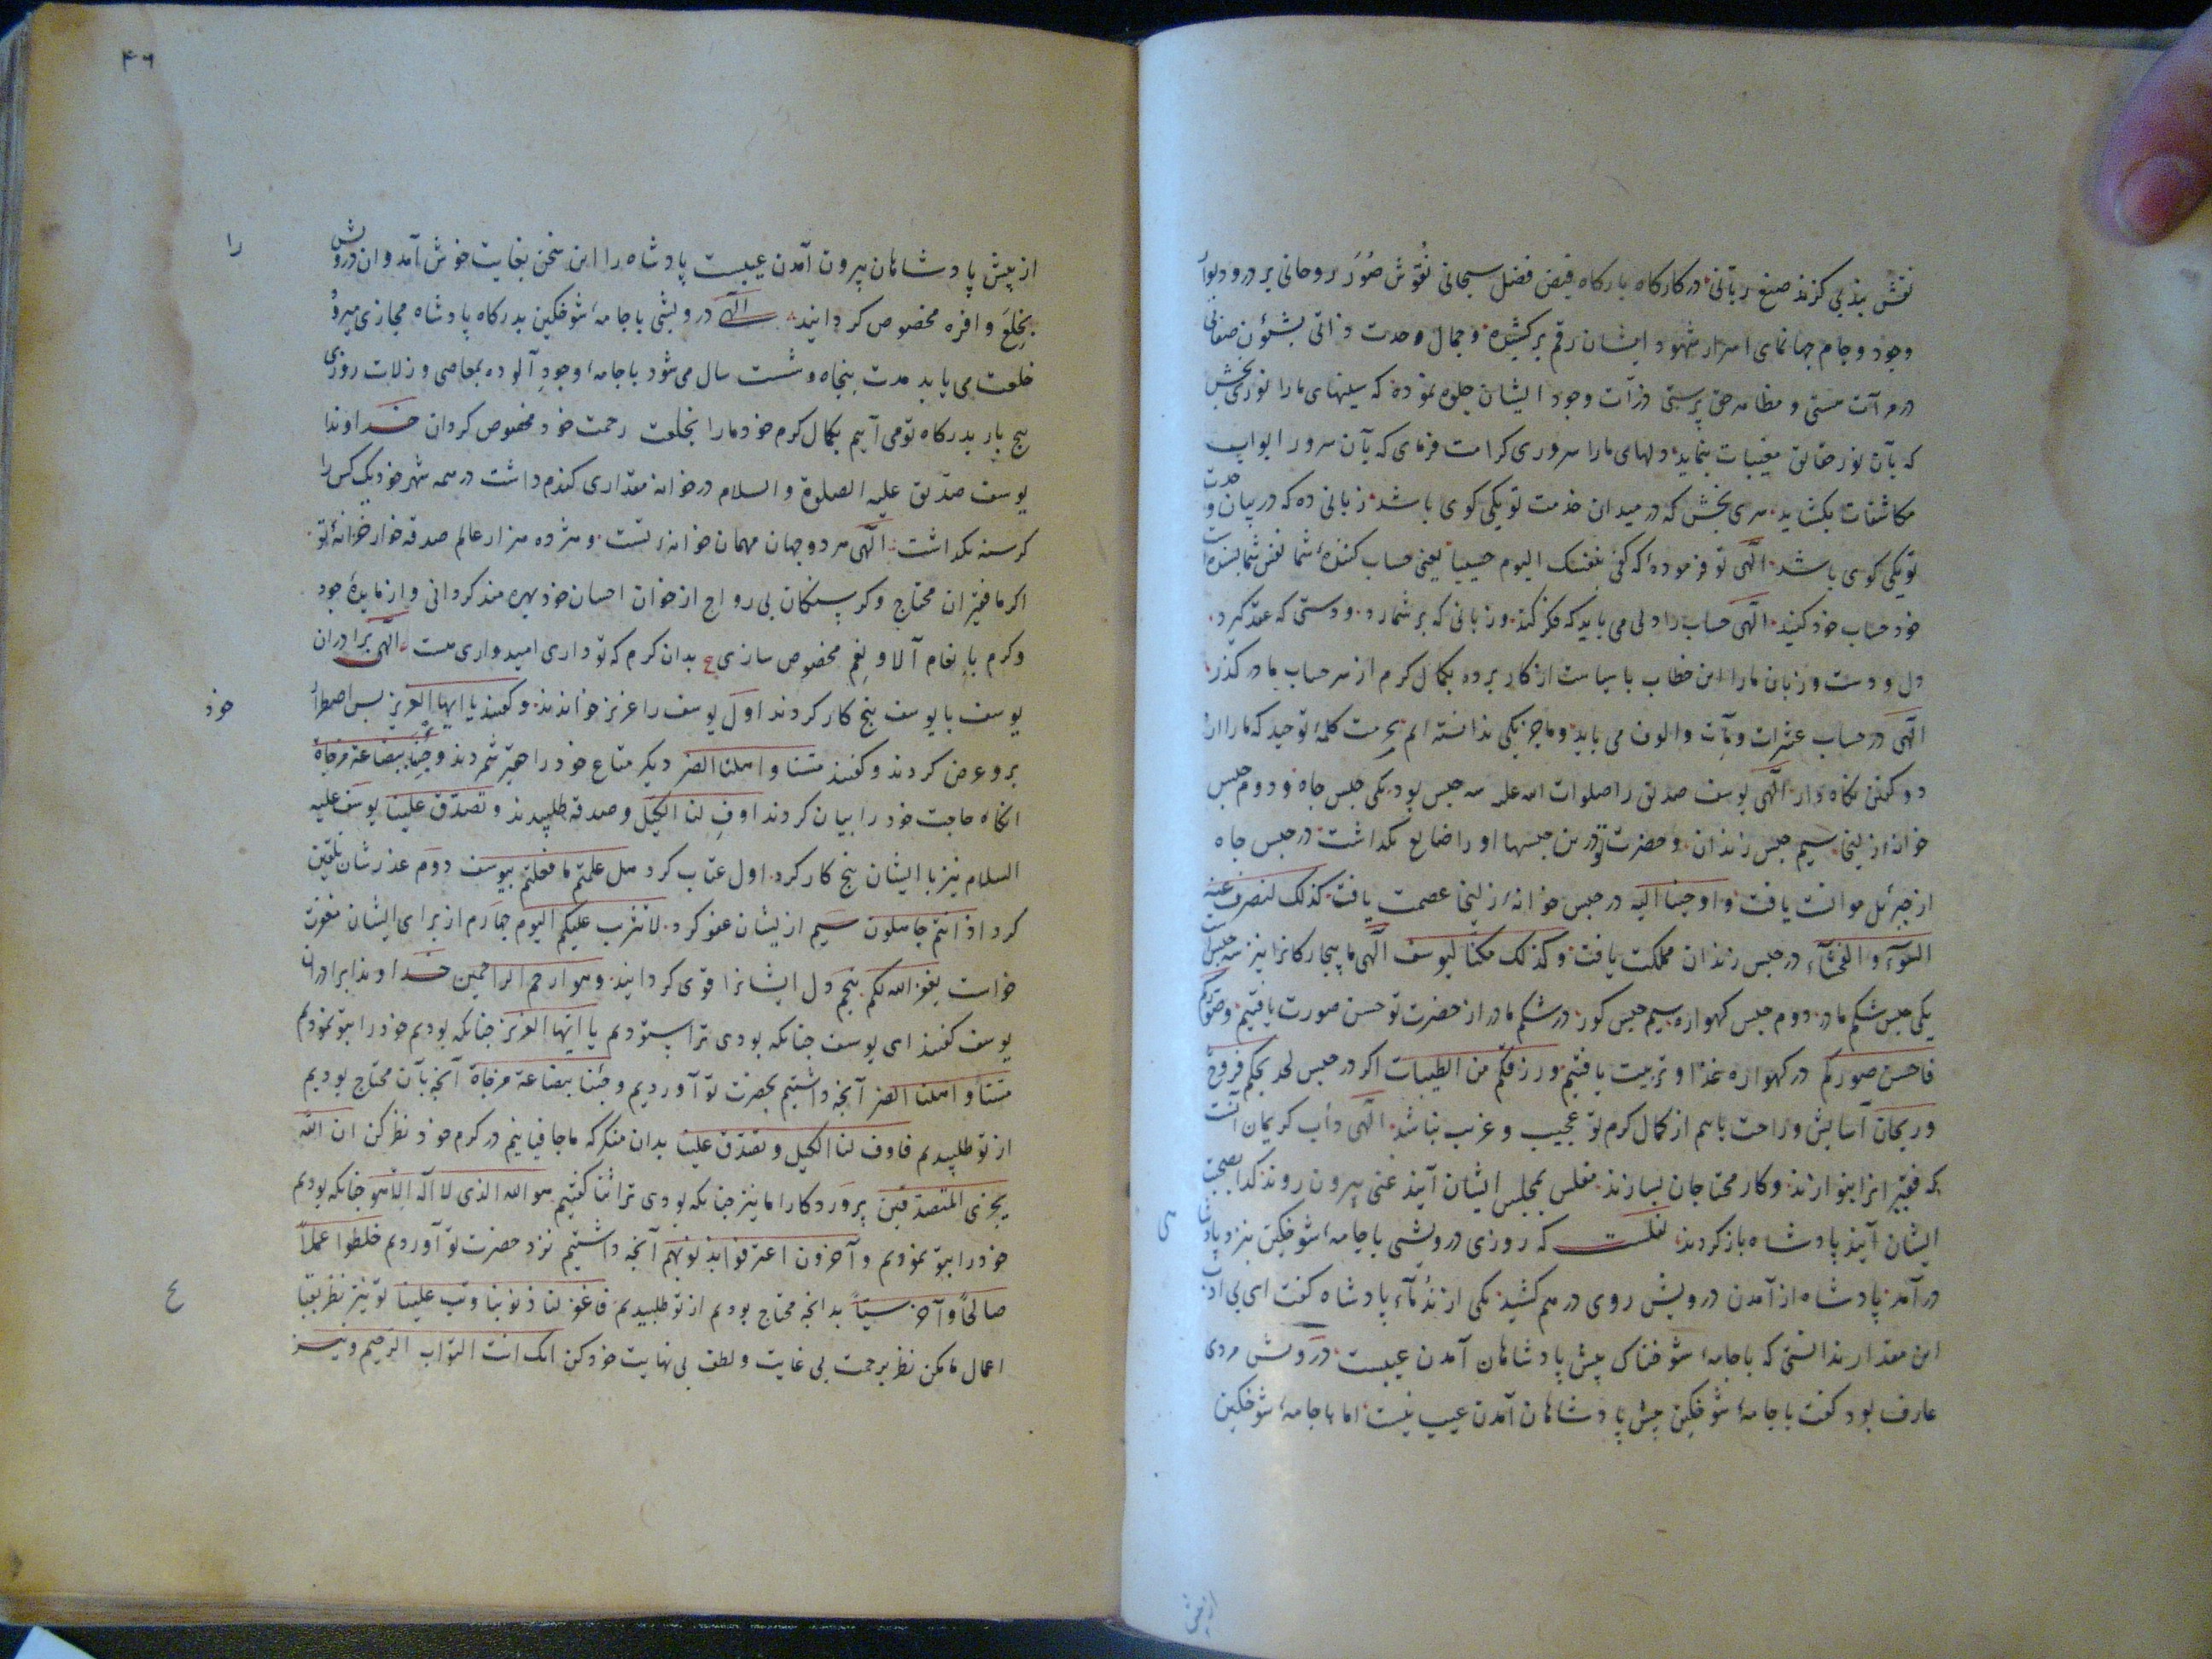 نقش بندی کزند صنع ربانی در کارکاه بارکاه فیض فضل سبحانی نقوش صُوَر روحانی بر در و دیوار
وجود و جام جهانمای اسرار شهود ایشان رقم برکشیده و جمال وحدت ذاتی بشؤن صفاتی
در مرآت هستی و مظاهر حق پرستی ذرآت وجود ایشان جلوه نموده که سینهای ما را نوری بخش
که بآن نور حقایق مغیبات بنماید دلهای ما را سروری کرامت فرمای که بآن سرور ابواب
مکاشفات بکشاید سری بخش که در میدان خدمت تو یکی کوی باشد زبانی ده که در بیان وحدت
تو یکی کوی باشد الهی تو فرمودهٔ که کفی بنفسک الیوم حسیبا یعنی حساب کنندهٔ شما نفس شما بسنده است
خود حساب خود کنید الهی حساب را دلی می باید که فکر کند و زبانی که بر شمارد و دستی که عقد کیرد
دل و دست و زبان ما را این خطاب با سیاست از کار برده بکمال کرم از سر حساب ما درکذر
الهی در حساب عشرات و مآت و الوف می باید و ما جز یکی ندانسته ایم بحرمت کلمهٔ توحید که ما را از
دو کفتن نکاه دار الهی یوسف صدیق را صلوات الله علیه سه حبس بود یکی حبس چاه و دوم حبس
خوانه زلیخا سیم حبس زندان و حضرت تو درین حبسها او را ضایع نکداشت در حبس چاه
از جبرئل موانست یافت و اوحینا الیه در حبس خوانهٔ زلیخا عصمت یافت کذلک لنصرف عنه
السوء و الفحشآء در حبس زندان مملکت یافت و کذلک مکنا لیوسف الهی ما بیچارکانرا نیز سه حبس است
یکی حبس شکم مادر دوم حبس کهواره سیم حبس کور در شکم مادر از حضرت تو حسن صورت یافتیم و صورکم
فاحسن صورکم در کهواره غذا و تربیت یافتیم و رزقکم من الطیبات اکر در حبس لحد بحکم فروح
و ریحان آسایش و راحت یابیم از کمال کرم تو عجیب و غریب نباشد الهی دأب کریمان آنست
که فقیرانرا بنوازند و کار محتاجان بسازند مفلس بمجلس ایشان آیند غنی بیرون روند کدا بصحبت
ایشان آیند پادشاه باز کردند نقلست که روزی درویشی با جامهٔ شوخکین بنزد پادشاه
درآمد پادشاه از آمدن درویش روی درهم کشید یکی از ندُمآء پادشاه کفت ای بی ادب
این مقدار ندانستی که با جامهٔ شوخناک پیش پادشاهان آمدن عیبست درویش مردی
عارف بود کفت با جامهٔ شوخکین پیش پادشاهان آمدن عیب نیست اما با جامهٔ شوخکین
ی
از پیش
۴۶
از پیش پادشاهان بیرون آمدن عیبست پادشاه را این سخن بغایت خوش آمد و ان درویش
را
بخِلعَ وافره مخصوص کردانید الهی درویشی با جامهٔ شوخکین بدرکاه پادشاه مجازی میرود
خلعت می یابد مدت پنجاه و شست سال می شود با جامهٔ وجودِ آلوده بمعاصی و زلات روزی
پنج بار بدرکاه تو می آییم بکمال کرم خود ما را بخلعت رحمت خود مخصوص کردان خداوندا
یوسف صدّیق علیه الصلوة و السلام در خوانه مقداری کندم داشت در همه شهر خود یک کس را
کرسنه نکداشت الهی هر دو جهان مهمان خوانهٔ تست و هژده هزار عالم صدقه خوار خزانهٔ تو
اکر ما فقیران محتاج و کرسنکان بی رواج از خوان احسان خود بهره مند کردانی و از مایدهٔ جود
و کرم بانعام آلا و نِعَم مخصوص سازی ع بدان کرم که تو داری امیدواری هست الهی برادران
یوسف با یوسف پنج کار کردند اول یوسف را عزیز خواندند و کفتند یا ایها العزیز پس اضطرار
خود
برو عرض کردند و کفتند مسّنا و اهلنا الضر دیکر متاع خود را حقیر شمردند و جئنا ببضاعة مزجاة
انکاه حاجت خود را بیان کردند اوفِ لنا الکیل و صدقه طلبیدند و تصدّق علینا یوسف علیه
السلام نیز با ایشان پنج کار کرد اول عتاب کرد هل علمتم ما فعلتم بیوسف دوم عذرشان تلقین
کرد اذ انتم جاهلون سیم ازیشان عفو کرد لا تثریب علیکم الیوم چهارم از برای ایشان مغفرت
خواست یغفر الله لکم پنجم دل ایشانرا قوی کردانید و هو ارحم الراحمین خداوندا برادران
یوسف کفتند ای یوسف چنانکه بودی ترا بستودیم یا ایها العزیز چنانکه بودیم خود را بتو نمودیم
مسّنا و اهلنا الضر آنچه داشتیم بحضرت تو آوردیم و جئنا ببضاعة مزجاة آنچه بآن محتاج بودیم
از تو طلبیدیم فاوف لنا الکیل و تصدّق علینا بدان منکر که ما جافیانیم در کرم خود نظر کن ان الله
یجزی المتصدقین پروردکارا ما نیز چنانکه بودی ترا ثنا کفتیم هو الله الذی لا آله الا هو چنانکه بودیم
خود را بتو نمودیم و آخرون اعترفوا بذنوبهم آنچه داشتیم نزد حضرت تو آوردیم خلطوا عملاً
صالحاً و آخر سیئاً بدانچه محتاج بودیم از تو طلبیدیم فاغفر لنا ذنوبنا و تب علینا تو نیز نظر بقبا
ع
اعمال ما مکن نظر برحمت بی غایت و لطف بی نهایت خود کن انک انت التواب الرّحیم و نیـز